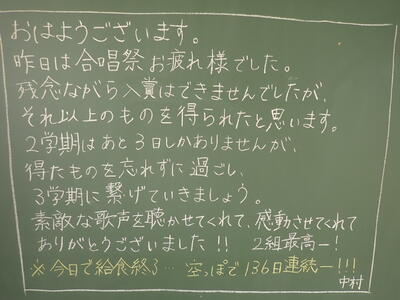 おはようございます。
昨日は合唱祭お疲れ様でした。
残念ながら入賞はできませんでしたが、
それ以上のものを得られたと思います。
2学期はあと3日しかありませんが、
得たものを忘れずに過ごし、
3学期に繋げていきましょう。
素敵な歌声を聴かせてくれて、感動させてくれて
ありがとうございました!! 2組最高ー!
※今日で給食終了… 空っぽで136日連続ー!!!
中村